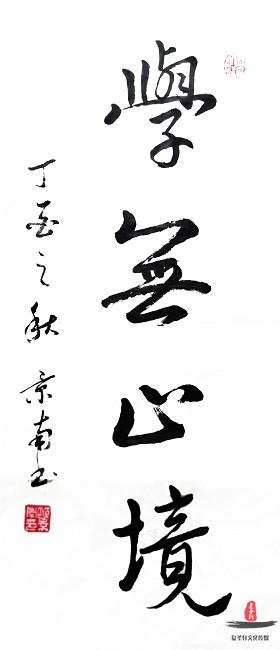 學無止境
丁酉之秋 景南书